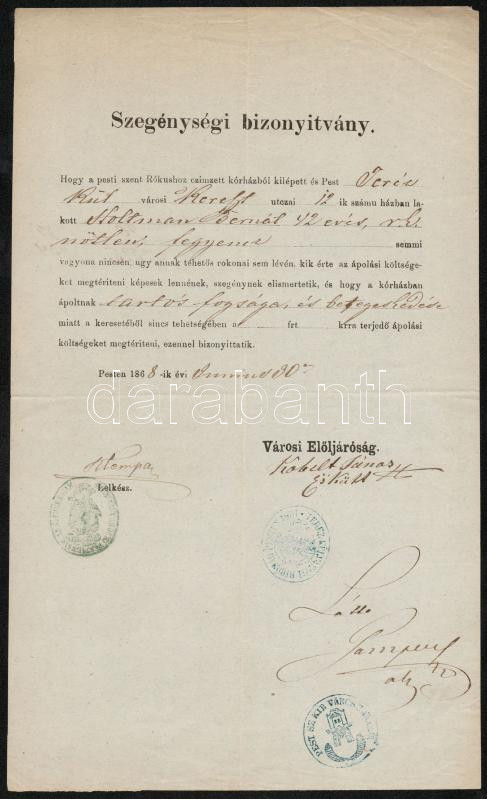 Szegénységi bizonyitvány.
Hogy a pesti szent Rókushoz czimzett kórházból kilépett és Pest Teréz
Kül városi Kereszt utczai 12 ik számu házban la-
kott Holtman Bernát 42 eves, r.k.
nőtlen, fegyenc semmi
vagyona nincsen, ugy annak téhetős rokonai sem lévén, kik érte az ápolási költsége-
ket megtériteni képesek lennének, szegénynek elismertetik, és hogy a kórházban
ápoltnak tartós fogsága, és betegeskedése
miatt a keresetéből sincs tehetségében a frt krra terjedő ápolási
költségeket megtériteni, ezennel bizonyittatik.
Pesten 1868-ik évi Junius 30
darabanth
Városi Előljáróság.
Klempa
Kobelt János
Lelkész.
Esküdt
Látta
PEST SZ KIR VÁROS